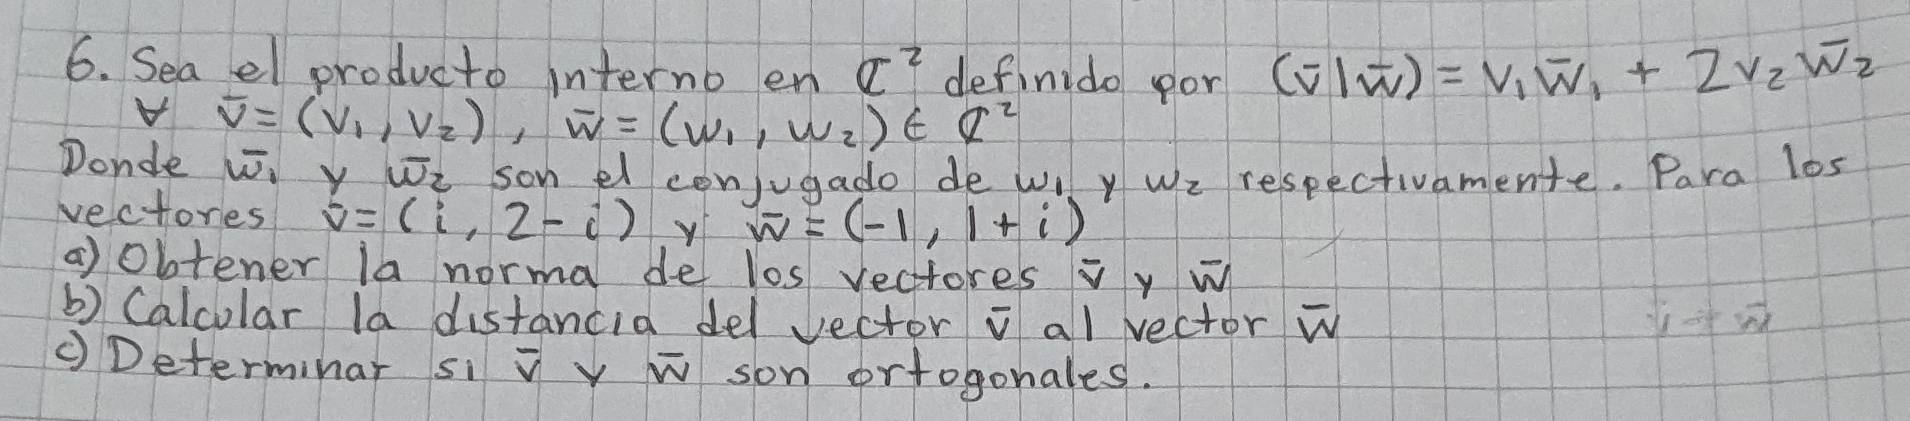 6. Sea el producto interno en ℂ² definido por (v̄|w̄) = v₁w̄₁ + 2v₂w̄₂
∀ v̄ = (v₁, v₂), w̄ = (w₁, w₂) ∈ ℂ²
Donde w̄₁ y w̄₂ son el conjugado de w₁ y w₂ respectivamente. Para los
vectores v̄ = (i, 2-i) y w̄ = (-1, 1+i)
a) Obtener la norma de los vectores v̄ y w̄
b) Calcular la distancia del vector v̄ al vector w̄
c) Determinar si v̄ y w̄ son ortogonales.